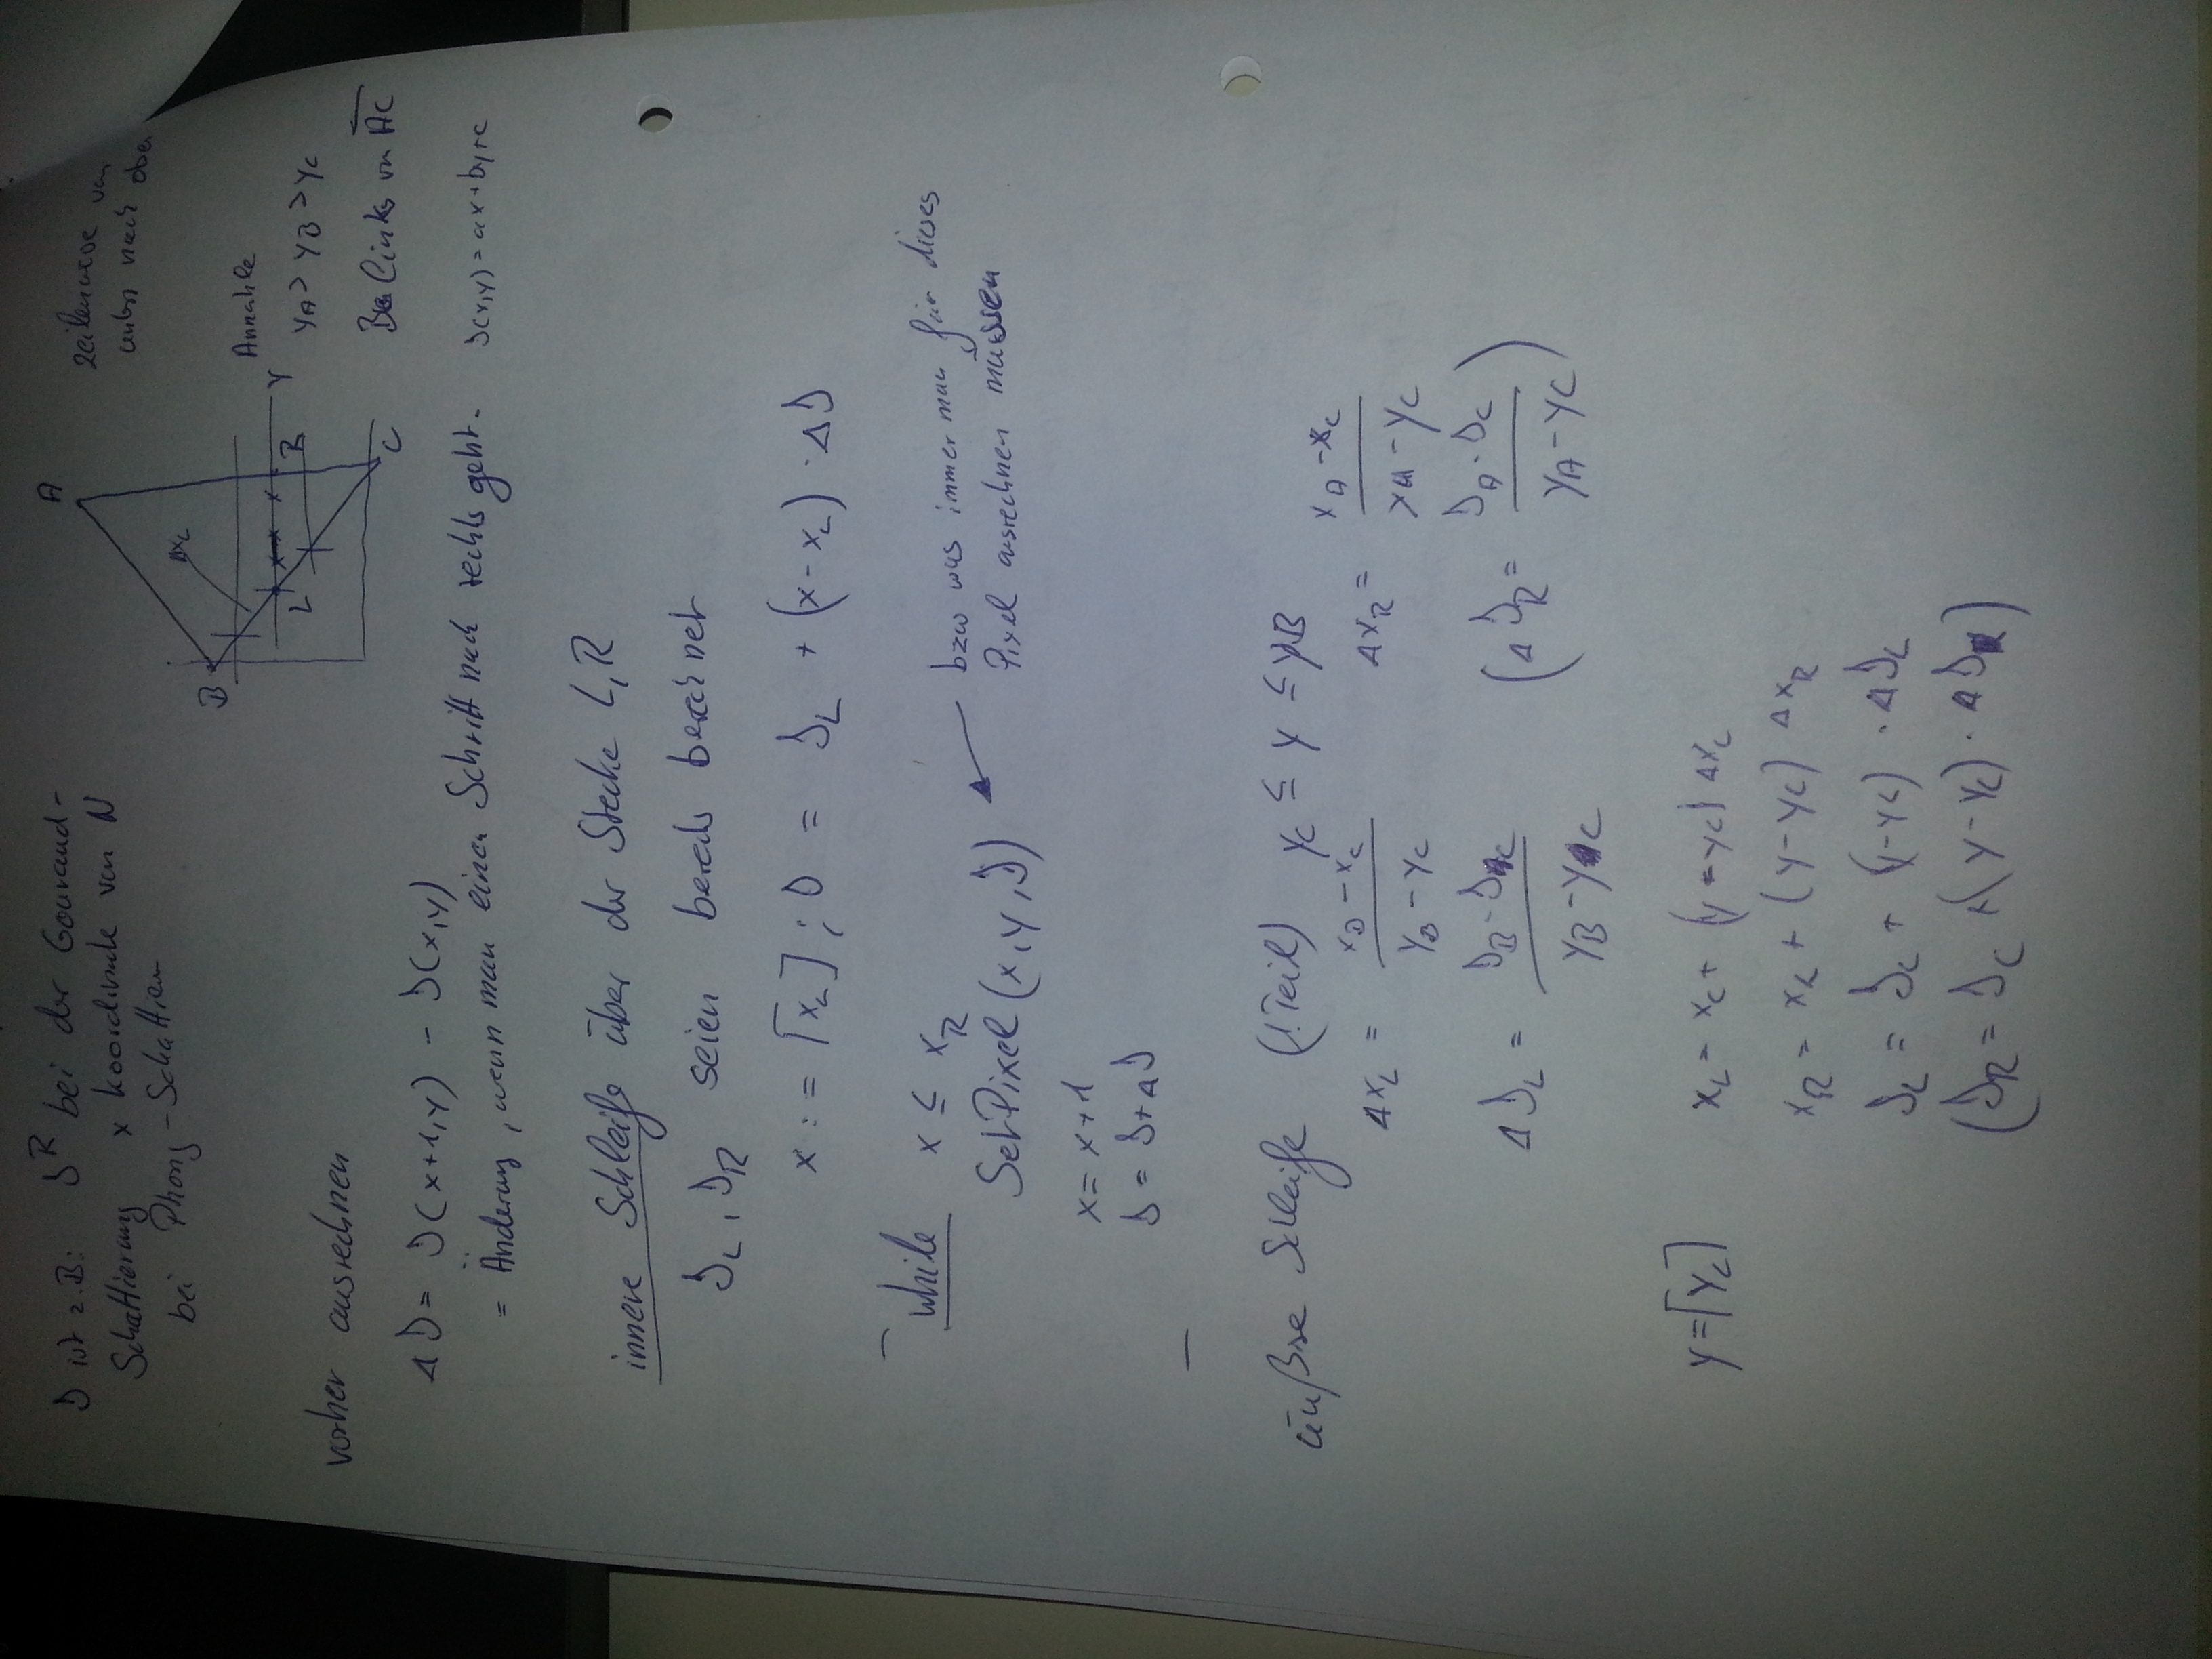 J ist z.B: J^R bei der Gouraud-
Schattierung x koordinate von N
bei Phong-Schattier
A
B
Δx_L
L
R
y
C
zeilenweise von
unten nach oben
Annahme
y_A > y_B > y_C
B links von AC
vorher ausrechnen
ΔJ = J(x+1,y) - J(x,y)
= Änderung, wenn man einen Schritt nach rechts geht.
J(x,y) = ax+by+c
innere Schleife über der Stecke L,R
J_L, J_R seien bereits berechnet
x := ⌈x_L⌉; J = J_L + (x-x_L) · ΔJ
while x ≤ x_R
SetPixel (x,y,J)
bzw was immer man für dieses
Pixel ausrechnen müssen
x = x+1
J = J+ΔJ
äußre Schleife (1.Teil) y_C ≤ y ≤ y_B
Δx_L = (x_B - x_C) / (y_B - y_C) Δx_R = (x_A - x_C) / (y_A - y_C)
ΔJ_L = (J_B - J_C) / (y_B - y_C) (ΔJ_R = (J_A - J_C) / (y_A - y_C))
y = ⌈y_C⌉ x_L = x_C + (y - y_C) Δx_L
x_R = x_C + (y - y_C) Δx_R
J_L = J_C + (y - y_C) · ΔJ_L
(J_R = J_C + (y - y_C) · ΔJ_R)